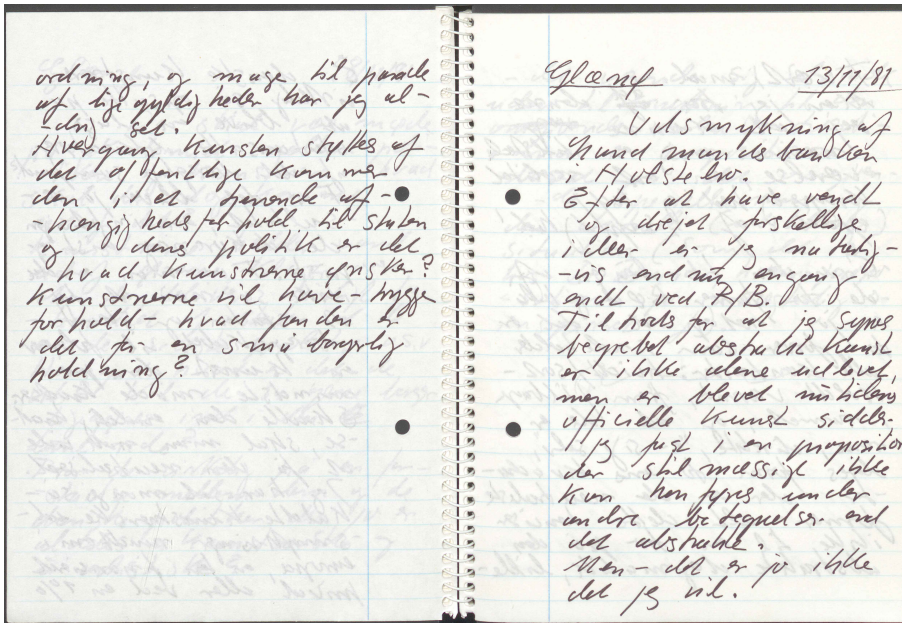 ordning, og mage til parade
af ligegyldigheder har jeg al-
-drig set.
Hvergang Kunsten styttes af
det offentlige kommer
den i et spænende af-
-hængighedsforhold til staten
og dens politik er det
hvad Kunstnerne ønsker?
Kunstnerne vil have - trygge
forhold - hvad fanden er
det for en små borgerlig
holdning?
Glænø 13/11/81
Udsmykning af
Handmandsbanken
i Holstebro.
Efter at have vendt
og drejet forskellige
ideer er jeg naturlig-
-vis endnu engang
endt ved R/B.
Tiltrods for at jeg synes
begrebet abstrakt Kunst
er ikke alene udlevet,
men er blevet
officielle Kunst sidder
jeg just i en proposition
der stilmæssigt ikke
kan henføres under
andre betegnelser end
det abstrakte.
Men - det er jo ikke
det jeg vil.